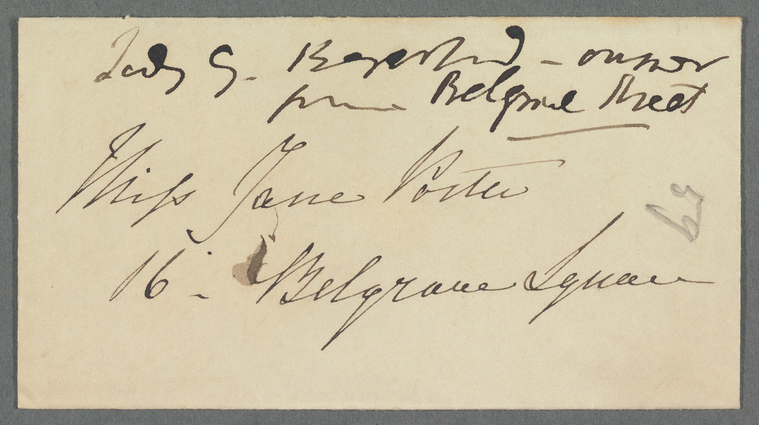 Lady G. Beresford – answer
from Belgrave Street
Miss Jane Porter
16 – Belgrave Square